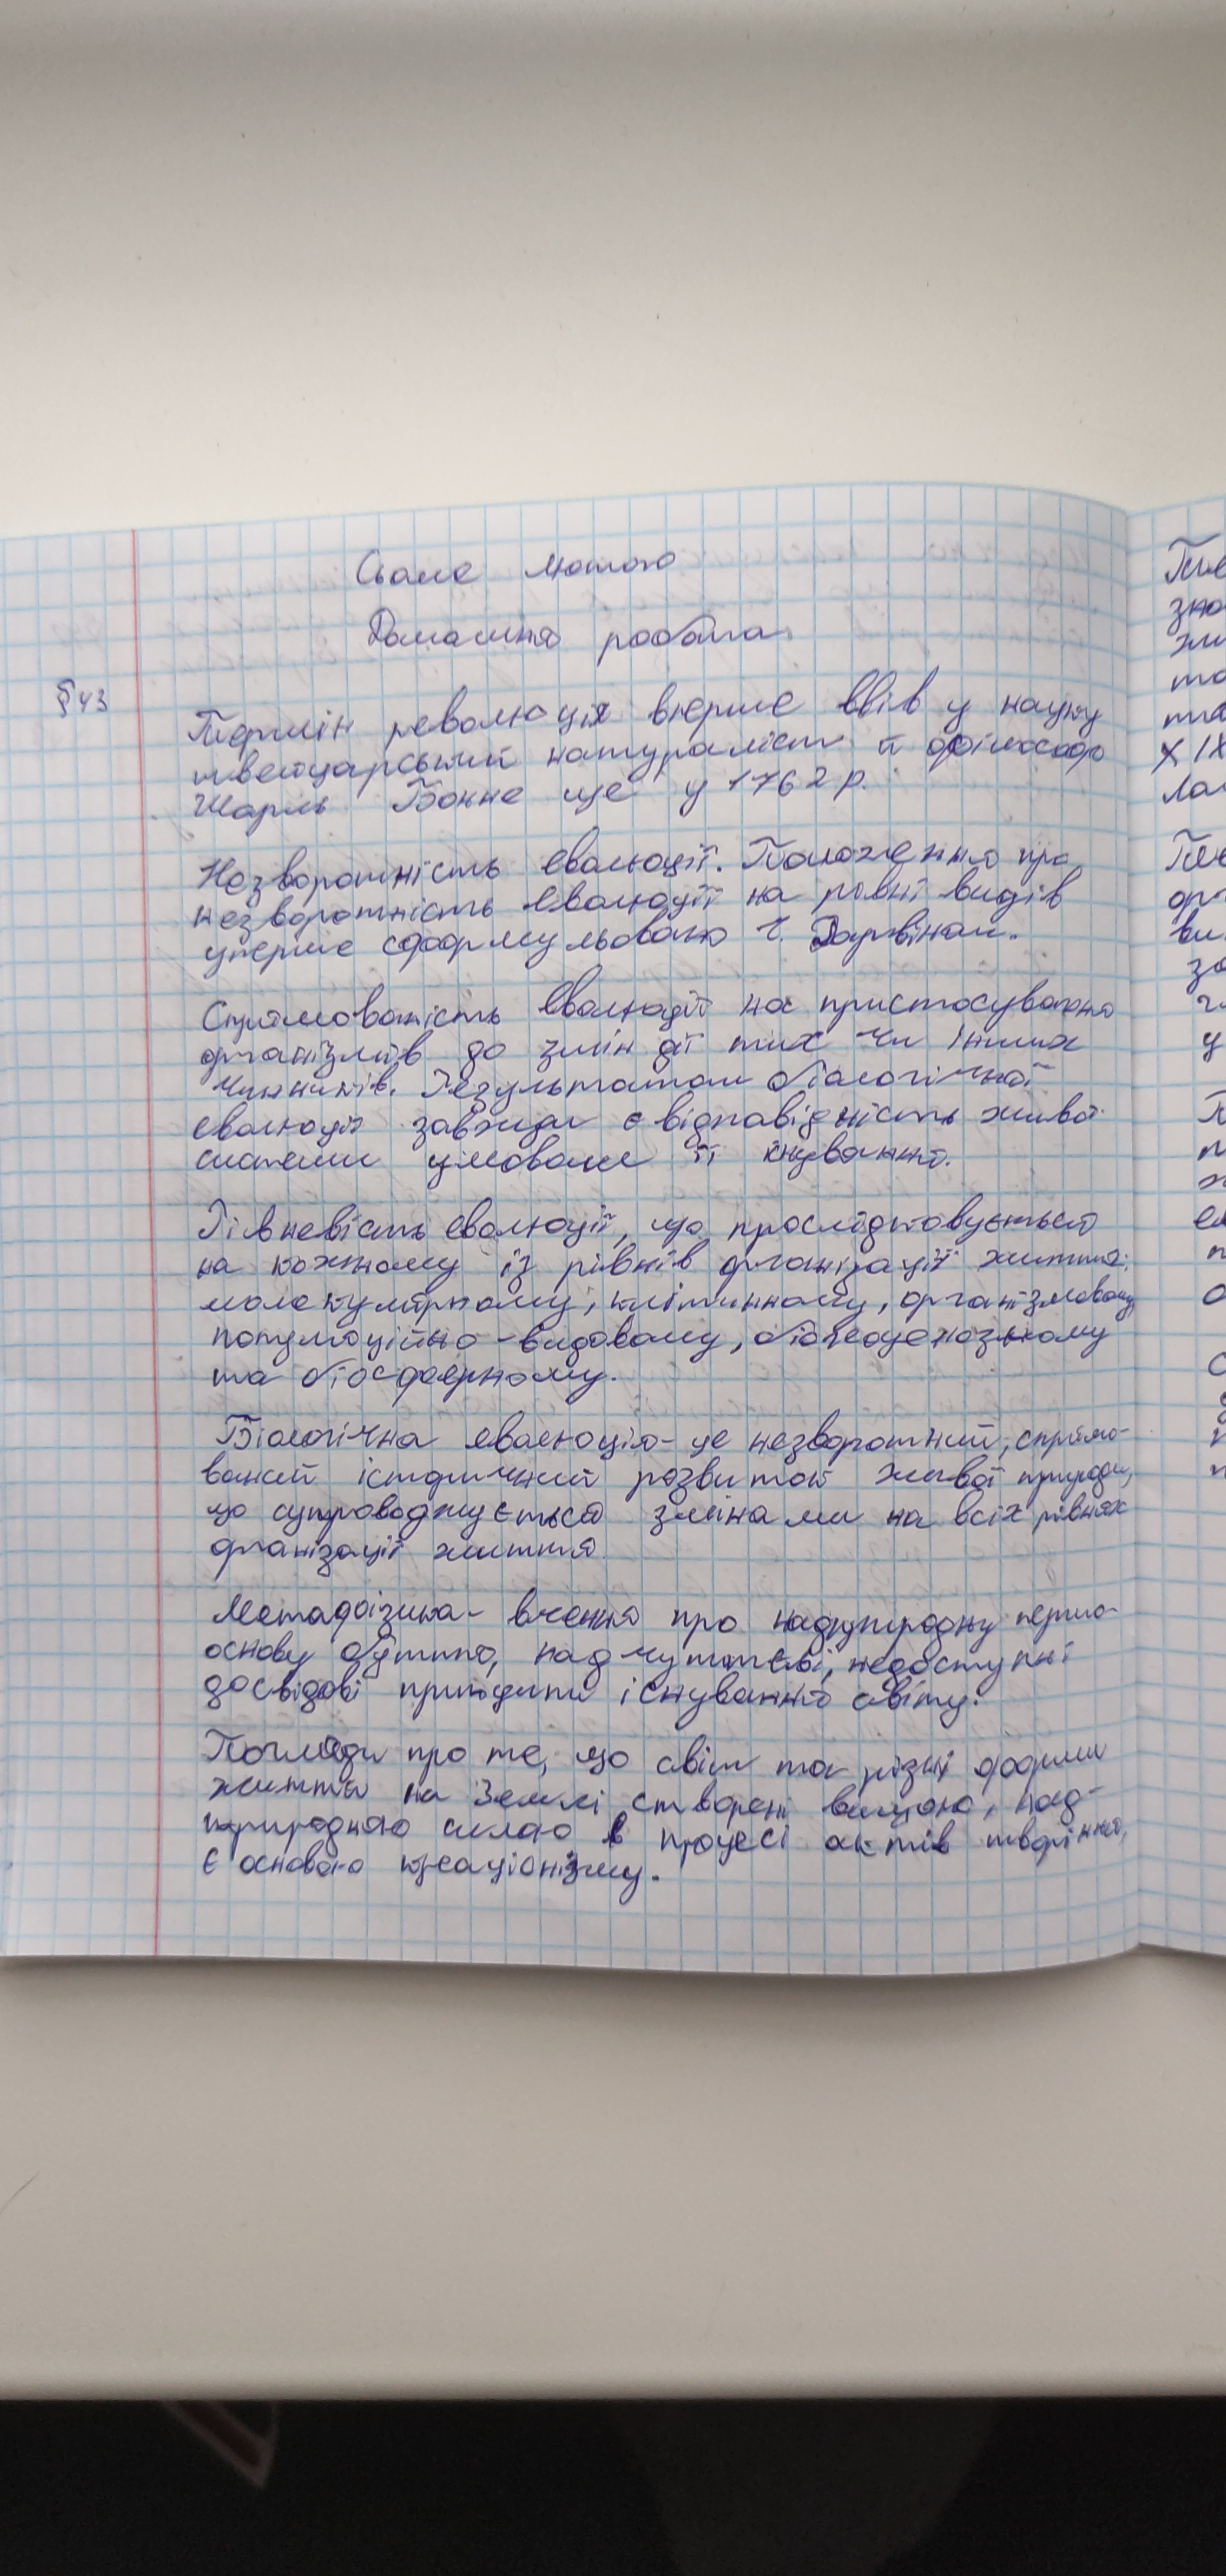 Сьоме лютого
Домашня робота
§43
Термін революція вперше ввів у науку
швейцарський натураліст й філософ
Шарль Бонне ще у 1762 р.
Незворотність еволюції. Положення про
незворотність еволюції на рівні видів
уперше сформульовано Ч. Дарвіном.
Спрямованість еволюції на пристосування
організмів до змін дії тих чи інших
чинників. Результатом біологічної
еволюції завжди є відповідність живої
системи умовам її існування.
Рівневість еволюції, що прослідковується
на кожному із рівнів організації життя:
молекулярному, клітинному, організмовому,
популяційно-видовому, біогеоценозному
та біосферному.
Біологічна еволюція - це незворотний, спрямо-
ваний історичний розвиток живої природи,
що супроводжується змінами на всіх рівнях
організації життя
Метафізика - вчення про надприродну першо-
основу буття, надчуттєві, недоступні
досвідові принципи існування світу.
Погляди про те, що світ та різні форми
життя на Землі створені вищою, над-
природною силою в процесі актів творіння,
є основою креаціонізму.